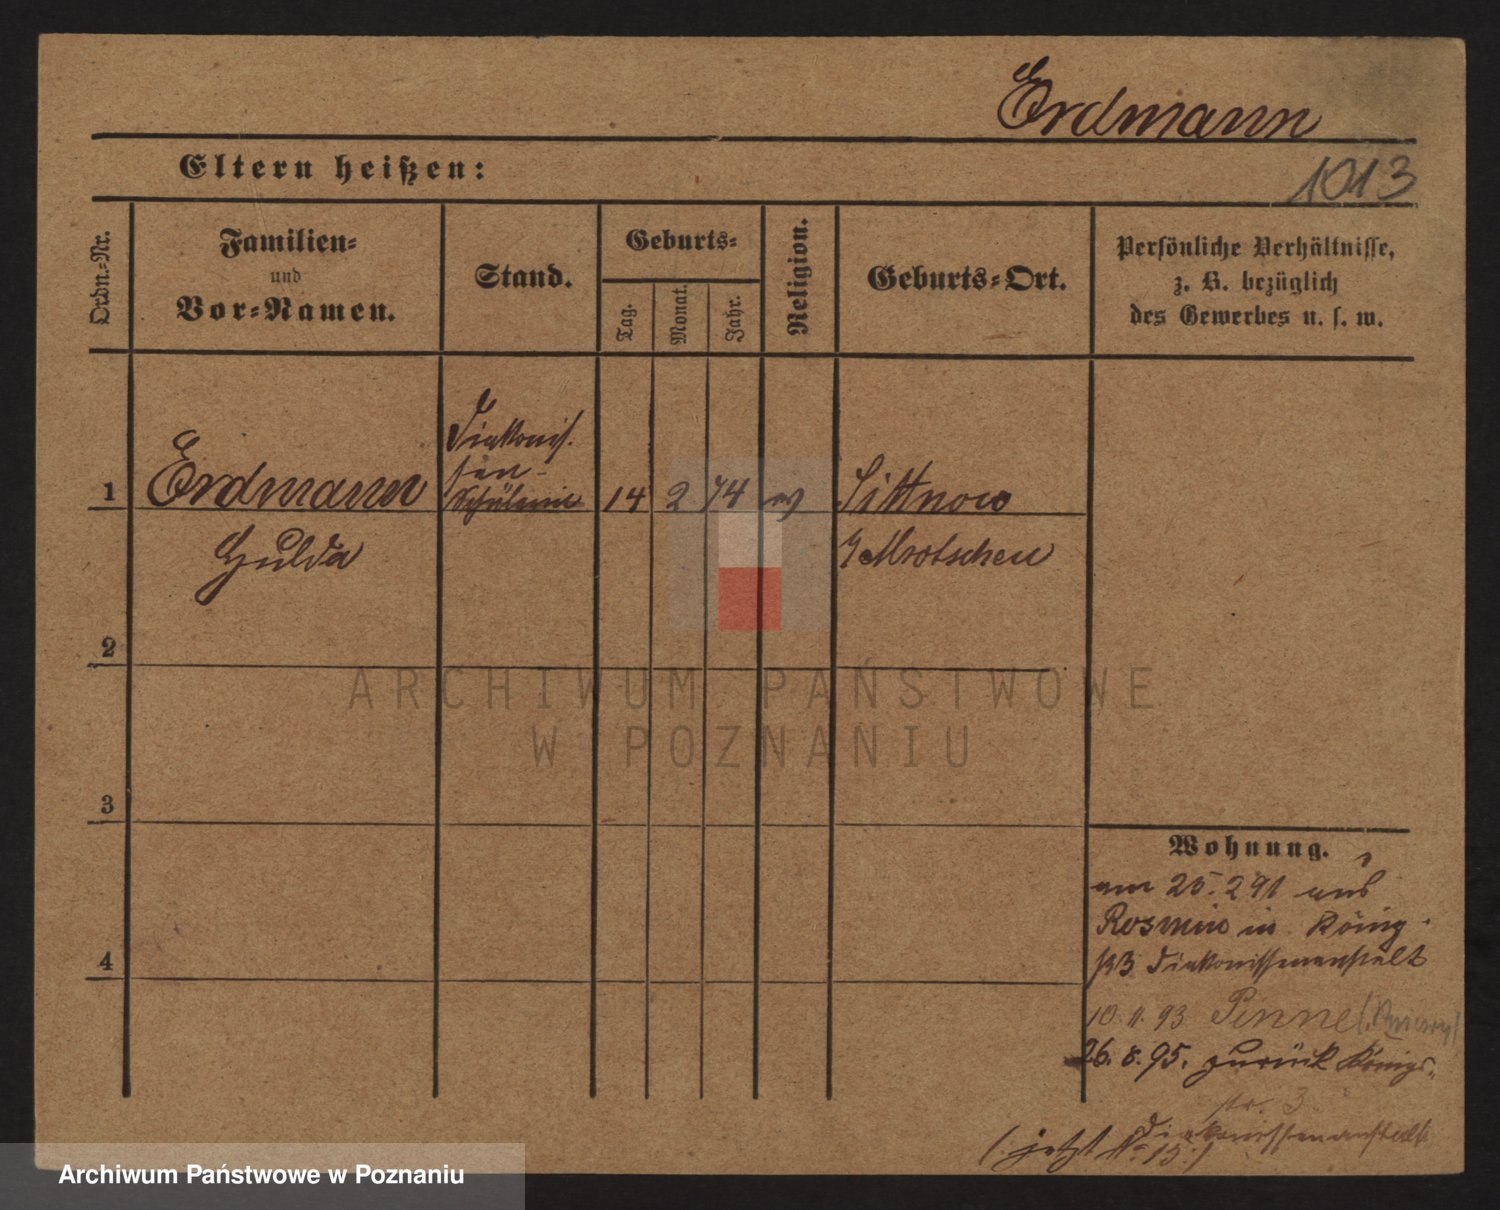 Erdmann
Eltern heißen:
1013
Ordn.-Nr.
Familien-
und
Vor-Namen.
Stand.
Geburts-
Tag.
Monat.
Jahr.
Religion.
Geburts-Ort.
Persönliche Verhältnisse,
z. B. bezüglich
des Gewerbes u. s. w.
1
Erdmann
Hulda
Diakonis-
sen-
Schülerin
14
2
74
ev
Sittnow
Mrotschen
2
3
4
Wohnung.
am 25. 2 91 aus
Rosmin in König-
str 3 Diakonissenanstalt
10. 11. 93 Pinne
26. 8. 95. zurück Königs-
str. 3
Diakonissenanstalt
(: jetzt № 15 :)
ARCHIWUM PAŃSTWOWE
W POZNANIU
Archiwum Państwowe w Poznaniu